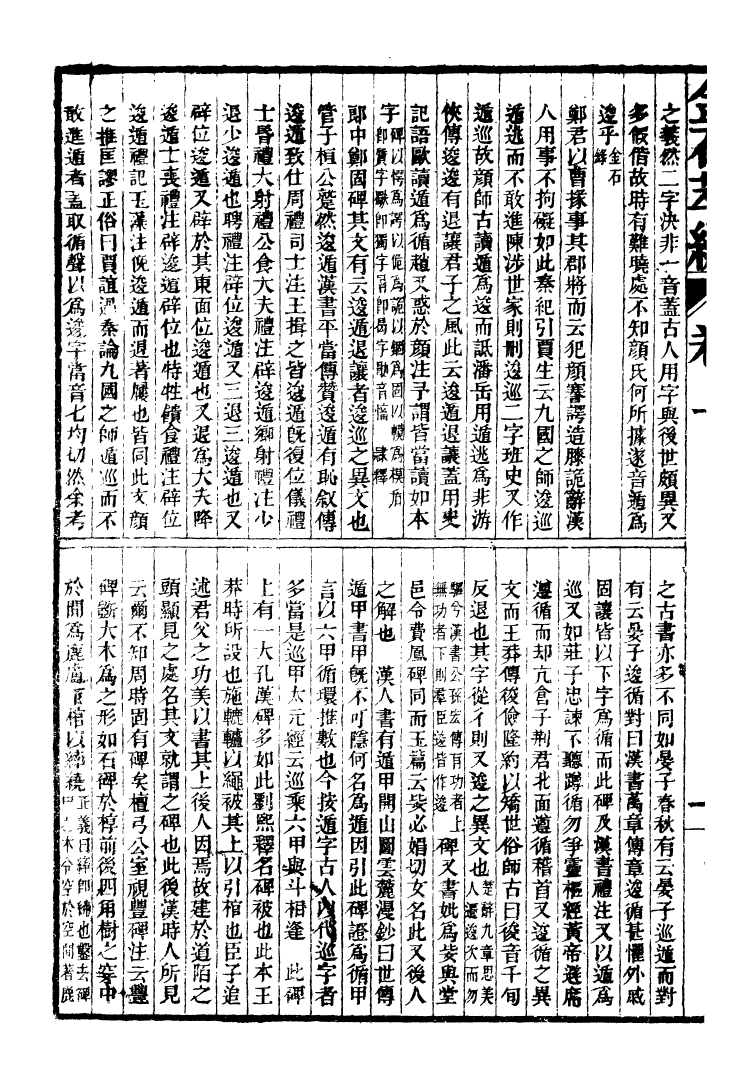 之義然二字決非一音蓋古人用字與後世頗異又
多假借故時有難曉處不知顏氏何所據遂音遁爲
逡乎 金石錄
鄭君以曹掾事其郡將而云犯顏謇諤造膝詭辭漢
人用事不拘礙如此秦紀引賈生云九國之師逡巡
遁逃而不敢進陳涉世家則刪逡巡二字班史又作
遁巡故顏師古讀遁爲逡而詆潘岳用遁逃爲非游
俠傳逡逡有退讓君子之風此云逡遁退讓蓋用史
記語歐讀遁爲循趙又惑於顏注予謂皆當讀如本
字 隸釋
耶中鄭固碑其文有云逡遁退讓者逡巡之異文也
管子桓公蹵然逡遁漢書平當傳贊逡遁有恥叙傳
逡遁致仕周禮司士注王揖之皆逡遁旣復位儀禮
士昏禮大射禮公食大夫禮注辟逡遁鄉射禮注少
退少逡遁也聘禮注辟位逡遁又三退三逡遁也又
辟位逡遁又辟於其東面位逡遁也又退爲大夫降
逡遁士喪禮注辟逡遁辟位也特牲饋食禮注辟位
逡遁禮記玉藻注俛逡遁而退著屨也皆同此文顏
之推匡謬正俗曰賈誼過秦論九國之師遁巡而不
敢進遁者蓋取循聲以爲逡字當音七均切然余考
之古書亦多不同如晏子春秋有云晏子巡遁而對
有云晏子逡循對曰漢書萬章傳章逡循甚懼外戚
固讓皆以下字爲循而此碑及漢書禮注又以遁爲
巡又如莊子忠諫不聽蹲循勿爭靈樞經黃帝避席
遵循而却亢倉子荆君北面遵循稽首又逡循之異
文而王莽傳後儉隆約以矯世俗師古曰後音千旬
反退也其字從彳則又逡之異文也 楚辭九章思美人遷逡次而勿
驅今漢書公孫宏傳有功者上無功者下則羣臣逡皆作逡 碑又書妣爲𡛷與堂
邑令費鳳碑同而玉篇云𡛷必媚切女名此又後人
之解也 漢人書有遁甲開山圖雲麓漫鈔曰世傳
遁甲書甲旣不可隱何名爲遁因引此碑證爲循甲
言以六甲循環推數也今按遁字古人以代巡字者
多當是巡甲太元經云巡乘六甲與斗相逢 此碑
上有一大孔漢碑多如此劉熙釋名碑被也此本王
莽時所設也施轆轤以繩被其上以引棺也臣子追
述君父之功美以書其上後人因焉故建於道陌之
頭顯見之處名其文就謂之碑也此後漢時人所見
云爾不知周時固有碑矣檀弓公室視豐碑注云豐
碑斲大木爲之形如石碑於椁前後四角樹之穿中
於閒爲鹿盧下棺以繂繞 正義曰繂卽紼也鑿去碑中之木令空於空閒著鹿